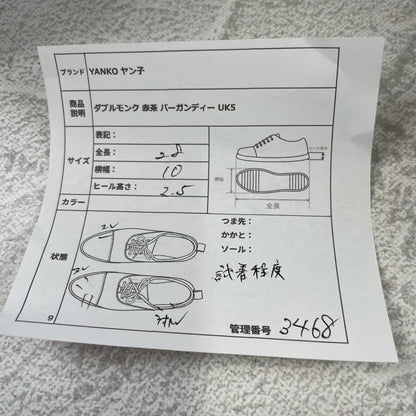 ブランド YANKO ヤン子
商品説明 ダブルモンク 赤茶 バーガンディー UK5
サイズ
表記：
全長： 28
横幅： 10
ヒール高さ： 2.5
ヒール高さ
横幅
全長
カラー
状態
つま先：
かかと：
ソール：
試着程度
管理番号 3468
9